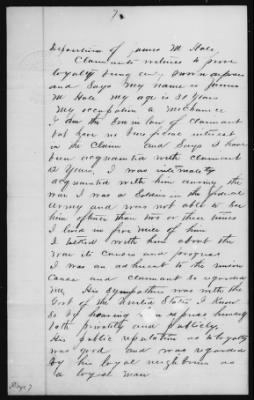 7
Deposition of James M Hale,
Claimants witness to prove
loyalty being duly sworn deposes
and Says my name is James
M Hale my age is 30 years
My occupation a mechanic
I am the Son in law of claimant
but have no beneficial interest
in the Claim and Says I have
been acquainted with claimant
12 Years, I was intimately
acquainted with him during the
war I was a Soldier in the Federal
army and was not able to See
him oftener than two or three times
I lived in five miles of him
I talked with him about the
war its Causes and progress
I was an adherent to the union
Cause and claimant so regarded
me, His Sympathies was with the
Govt of the United States I Know
So by hearing him express himself
both privately and publicly.
His public reputation as to loyalty
was good and was regarded
by his loyal neighbours as
a loyal man
Page 7